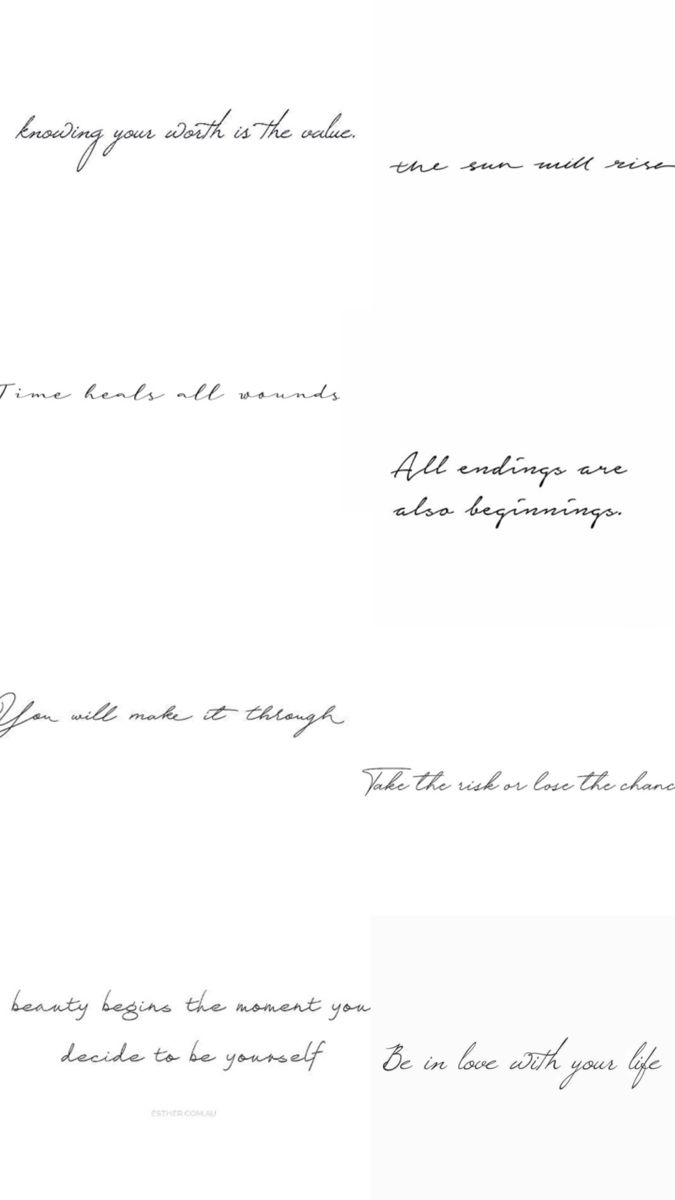 knowing your worth is the value.
the sun will rise
Time heals all wounds
All endings are
also beginnings.
You will make it through
Take the risk or lose the chanc
beauty begins the moment you
decide to be yourself
Be in love with your life
ESTHER.COM.AU